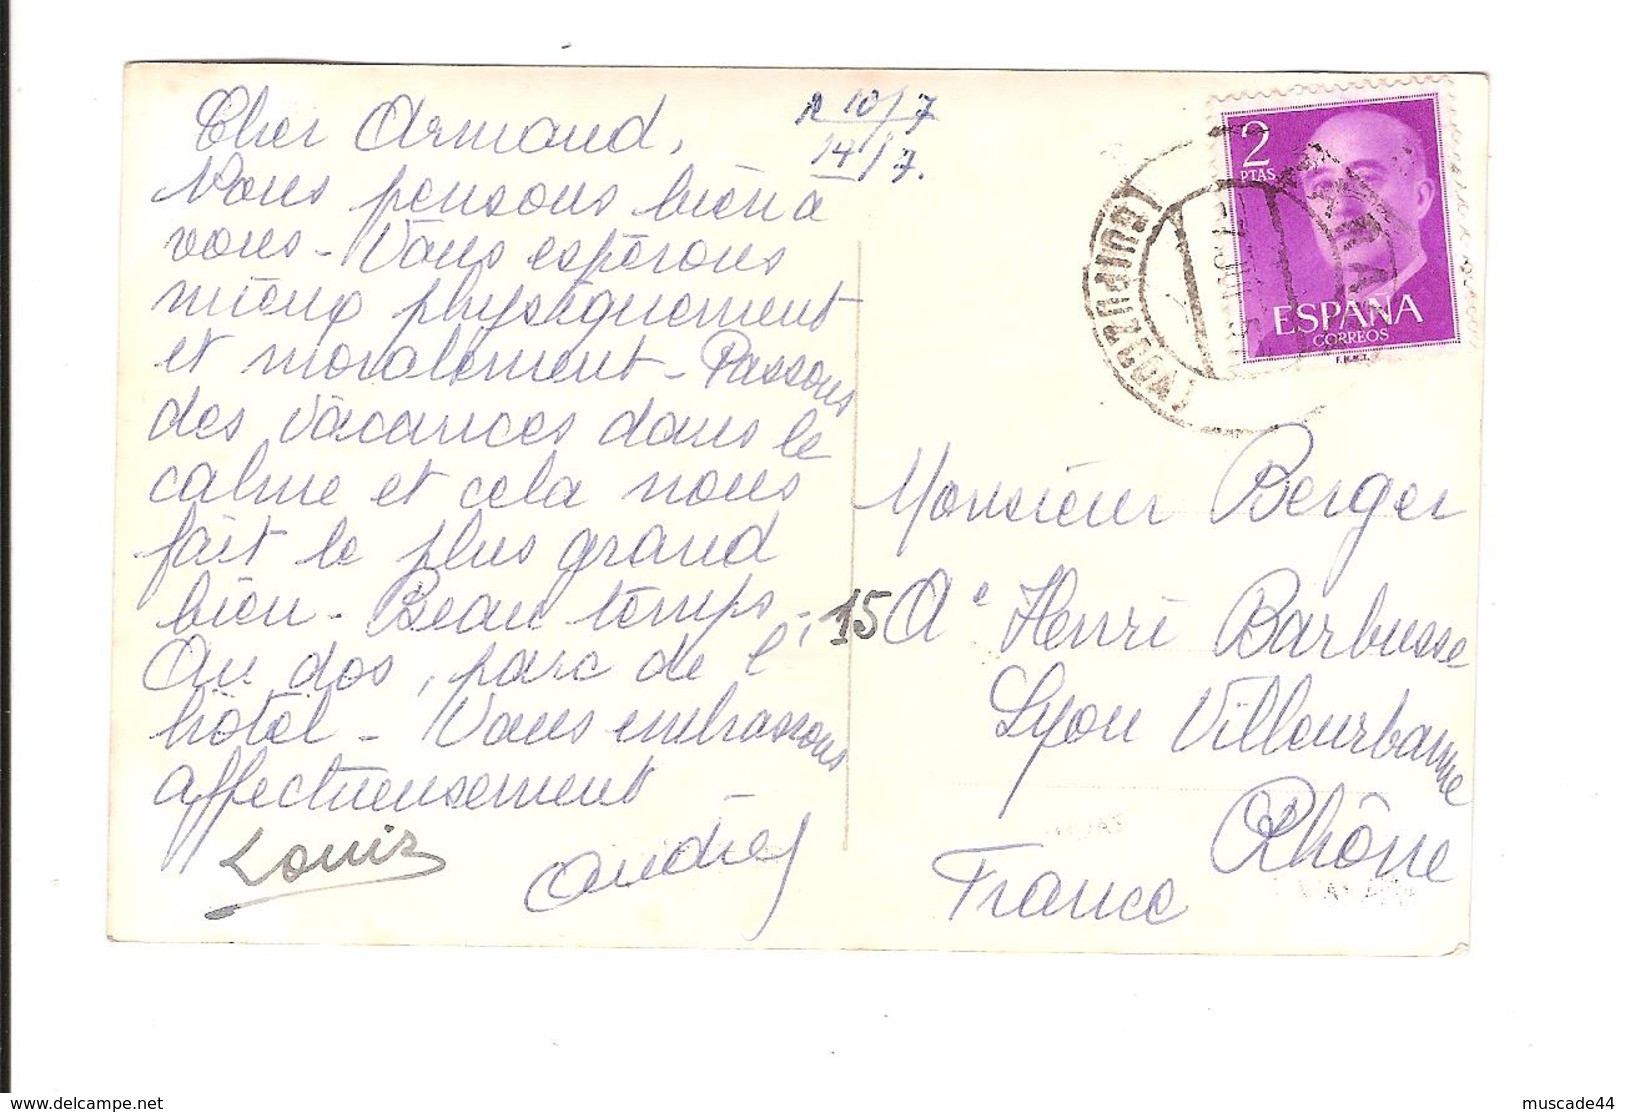 Cher Armand,
Nous pensons bien à
vous - Vous espérons
mieux physiquement
et moralement - Passons
des vacances dans le
calme et cela nous
fait le plus grand
bien - Beau temps -
Au dos, parc de l'
hôtel - Vous embrassons
affectueusement
Louis
Andrée
R 10/7
14/7.
2
PTAS
ESPAÑA
CORREOS
F.N.M.T.
(GUIPUZCOA)
Monsieur Berger
15 Ae Henri Barbusse
Lyon Villeurbanne
Rhône
France
www.delcampe.net
muscade44